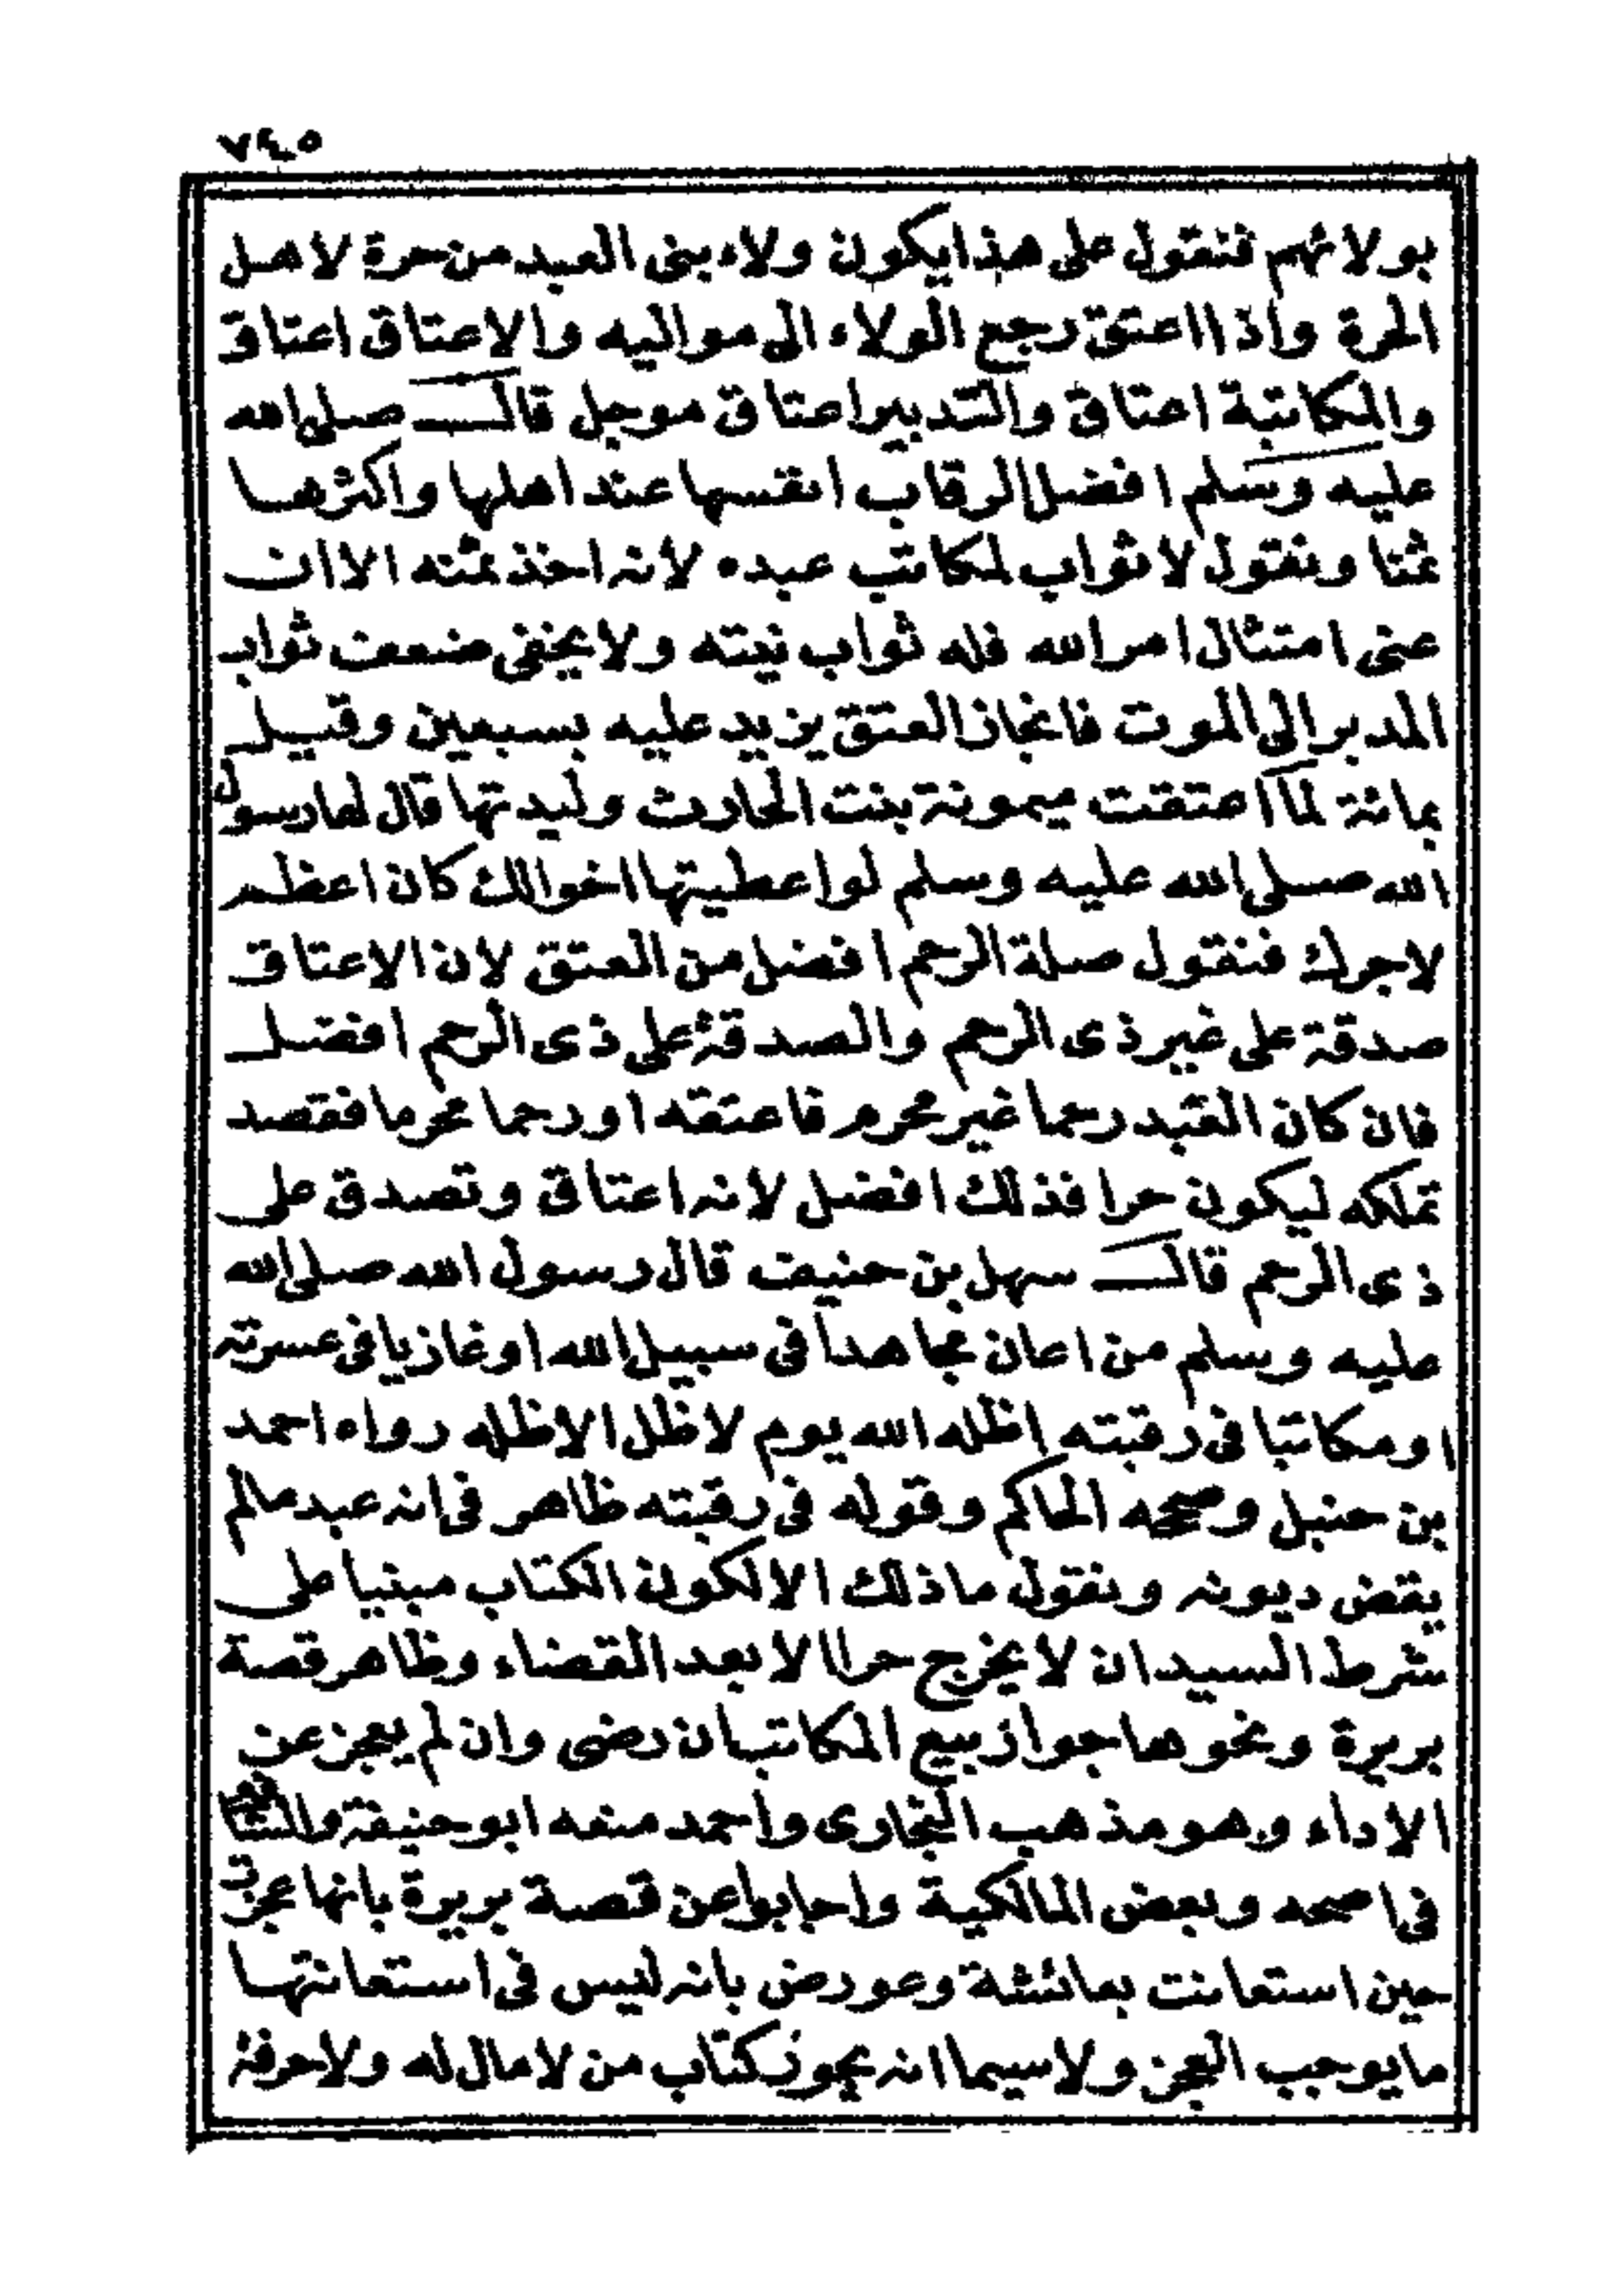 ٧٤٥
بولائهم فنقول على هذا يكون ولاء بنى العبد من حرة لاهل
الحرة واذا اعتق رجع الولاء الى مواليه والاعتاق اعتاق
والمكاتبة اعتاق والتدبير اعتاق موجل قال صلى الله
عليه وسلم افضل الرقاب انفسها عند اهلها واكثرها
ثمنا ونقول لا ثواب لمكاتب عبده لانه اخذ ثمنه الا ان
عنى امتثال امر الله فله ثواب نيته ولا يخفى ضعف ثواب
المدبر الى الموت فانجاز العتق يزيد عليه بسبعين وقيل
بمائة لما اعتقت ميمونة بنت الحارث وليدتها قال لها رسول
الله صلى الله عليه وسلم لو اعطيتها اخوالك كان اعظم
لاجرك فنقول صلة الرحم افضل من العتق لان الاعتاق
صدقة على غير ذى الرحم والصدقة على ذى الرحم افضل
فان كان العبد رحما غير محرم فاعتقه او رحما محرما فقصد
تملكه ليكون حرا فذلك افضل لانه اعتاق وتصدق على
ذى الرحم قال سهل بن حنيف قال رسول الله صلى الله
عليه وسلم من اعان مجاهدا فى سبيل الله او غازيا فى عسرته
او مكاتبا فى رقبته اظله الله يوم لا ظل الا ظله رواه احمد
بن حنبل وصححه الحاكم وقوله فى رقبته ظاهر فى انه عبد ما لم
يقض ديونه ونقول ما ذلك الا لكون الكتاب مبنيا على
شرط السيد ان لا يخرج حرا الا بعد القضاء وظاهر قصة
بريرة ونحوها جواز بيع المكاتب ان رضى وان لم يعجز عن
الاداء وهو مذهب البخارى واحمد منعه ابو حنيفة والشافعى
فى اصحه وبعض المالكية واجابوا عن قصة بريرة بانها عجزت
حين استعانت بعائشة وعورض بانه ليس فى استعانتها
ما يوجب العجز ولا سيما انه يجوز كتاب من لا مال له ولا حرفة